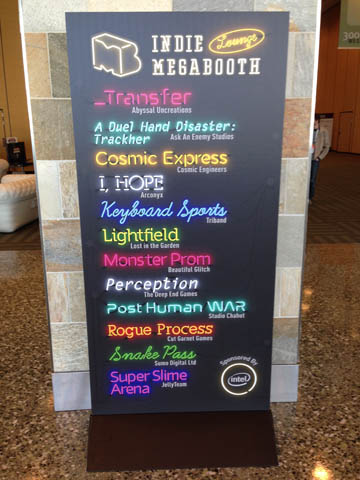 INDIE Lounge
MEGABOOTH
_Transfer
Abyssal Uncreations
A Duel Hand Disaster:
Trackher
Ask An Enemy Studios
Cosmic Express
Cosmic Engineers
I, HOPE
Arconyx
Keyboard Sports
Triband
Lightfield
Lost in the Garden
Monster Prom
Beautiful Glitch
Perception
The Deep End Games
Post Human WAR
Studio Chahut
Rogue Process
Cat Garnet Games
Snake Pass
Sumo Digital Ltd
Super Slime
Arena
JellyTeam
Sponsored By
intel
300